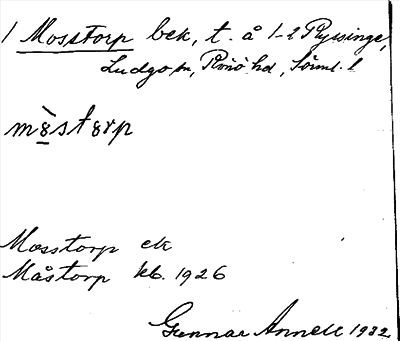 1 Mosstorp bek, t. å 1-2 Ryssinge,
Ludgo sn, Rönö hd, Söml. l
mòstorp
Mosstorp ek
Måstorp kb. 1926
Gunnar Annell 1932